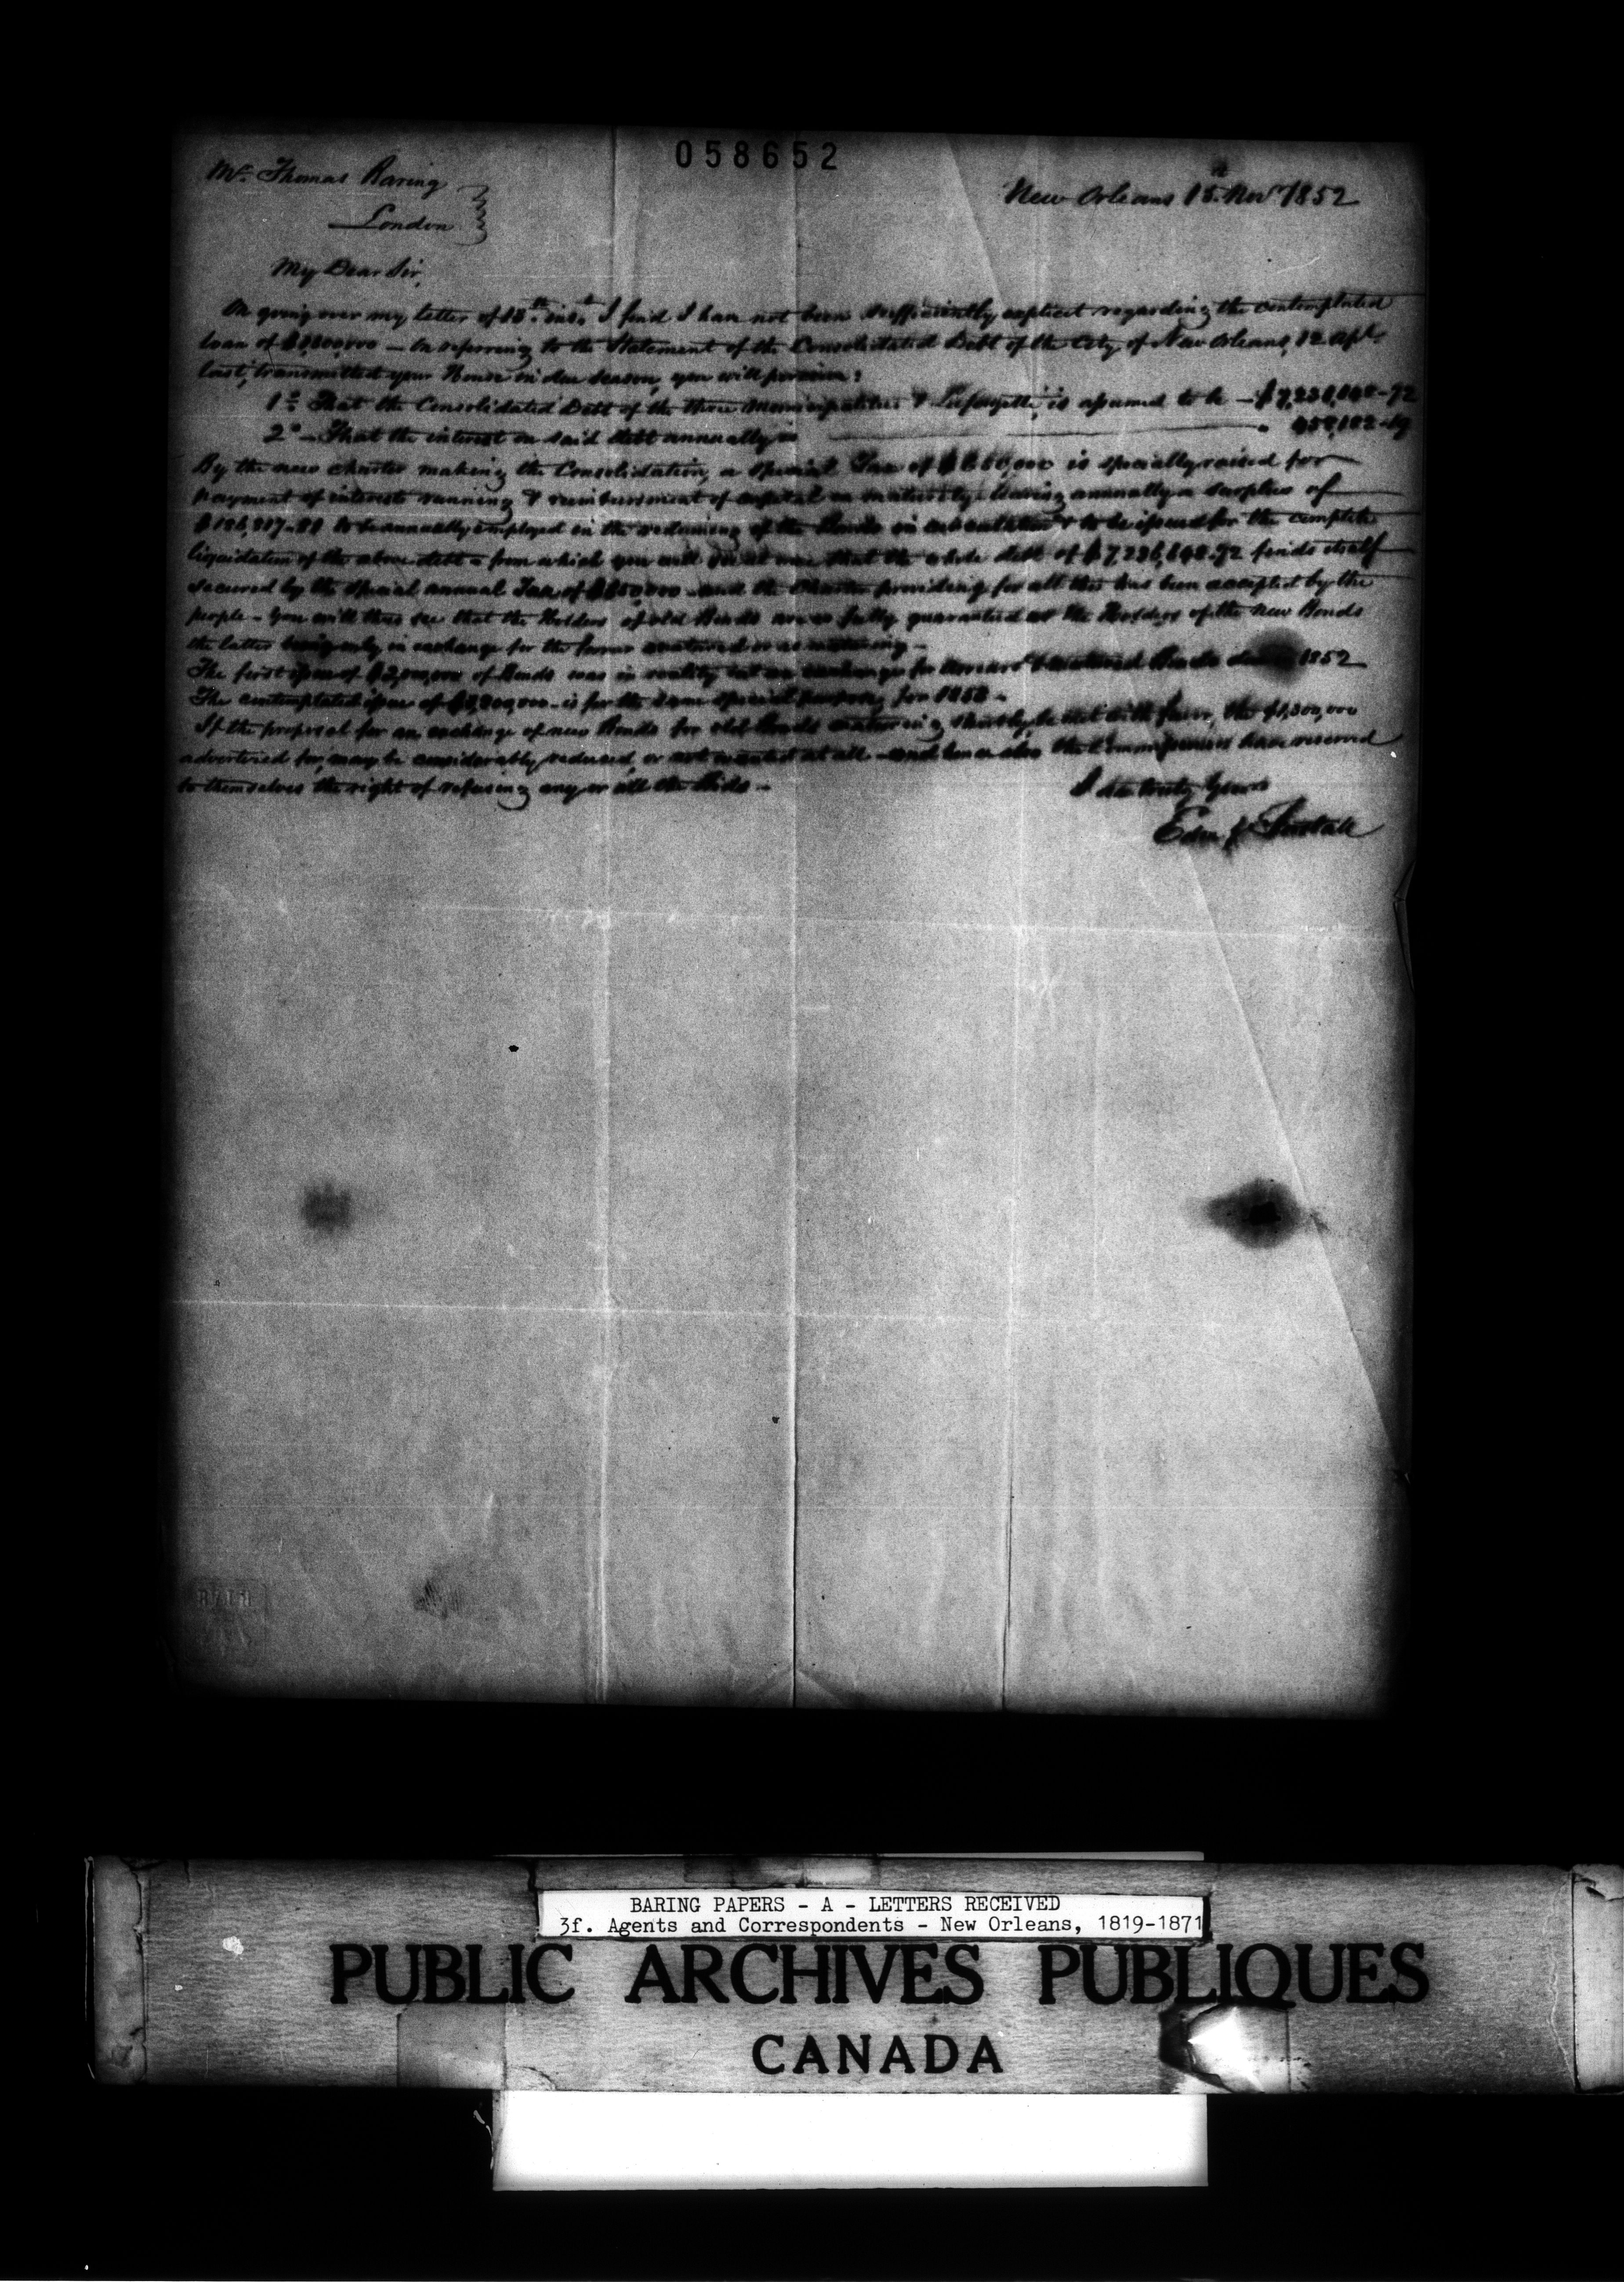 058652
Mr. Thomas Baring
London
New Orleans 15th Novr 1852
My Dear Sir,
On going over my letter of 13th inst. I find I have not been sufficiently explicit regarding the contemplated
loan of — On referring to the Statement of the Consolidated Debt of the City of New Orleans, 12 Apl.
last, transmitted your House in due season, you will perceive:
1st That the Consolidated Debt of the three Municipalities & Lafayette, is assumed to be —
2o — That the interest on said debt annually is
By the new charter making the Consolidation, a Special Tax of $650,000 is specially raised for
payment of interest running & reimbursement of capital on maturity - leaving annually a surplus of
to be annually employed in the redeeming of the Bonds in circulation & to be issued for the complete
liquidation of the above debt - from which you will that the whole debt of finds itself
secured by the special annual Tax of $650,000 - and the Charter providing for all this has been accepted by the
people - You will thus see that the Holders of old Bonds are as fully guaranteed as the Holders of the new Bonds
the latter being only in exchange for the former matured or as maturing -
The first issue of $2,000,000 of Bonds was in reality but an exchange for matured Bonds 1852
The contemplated issue of is for the same special purpose, for 1853 -
If the proposal for an exchange of new Bonds for old Bonds maturing shortly, be met with favor, the
advertised for, may be considerably reduced, or not wanted at all - and hence also the Commissioners have reserved
to themselves the right of refusing any or all the Bids -
I am truly Yours
Edm J Forstall
BARING PAPERS - A - LETTERS RECEIVED
3f. Agents and Correspondents - New Orleans, 1819-1871
PUBLIC ARCHIVES PUBLIQUES
CANADA